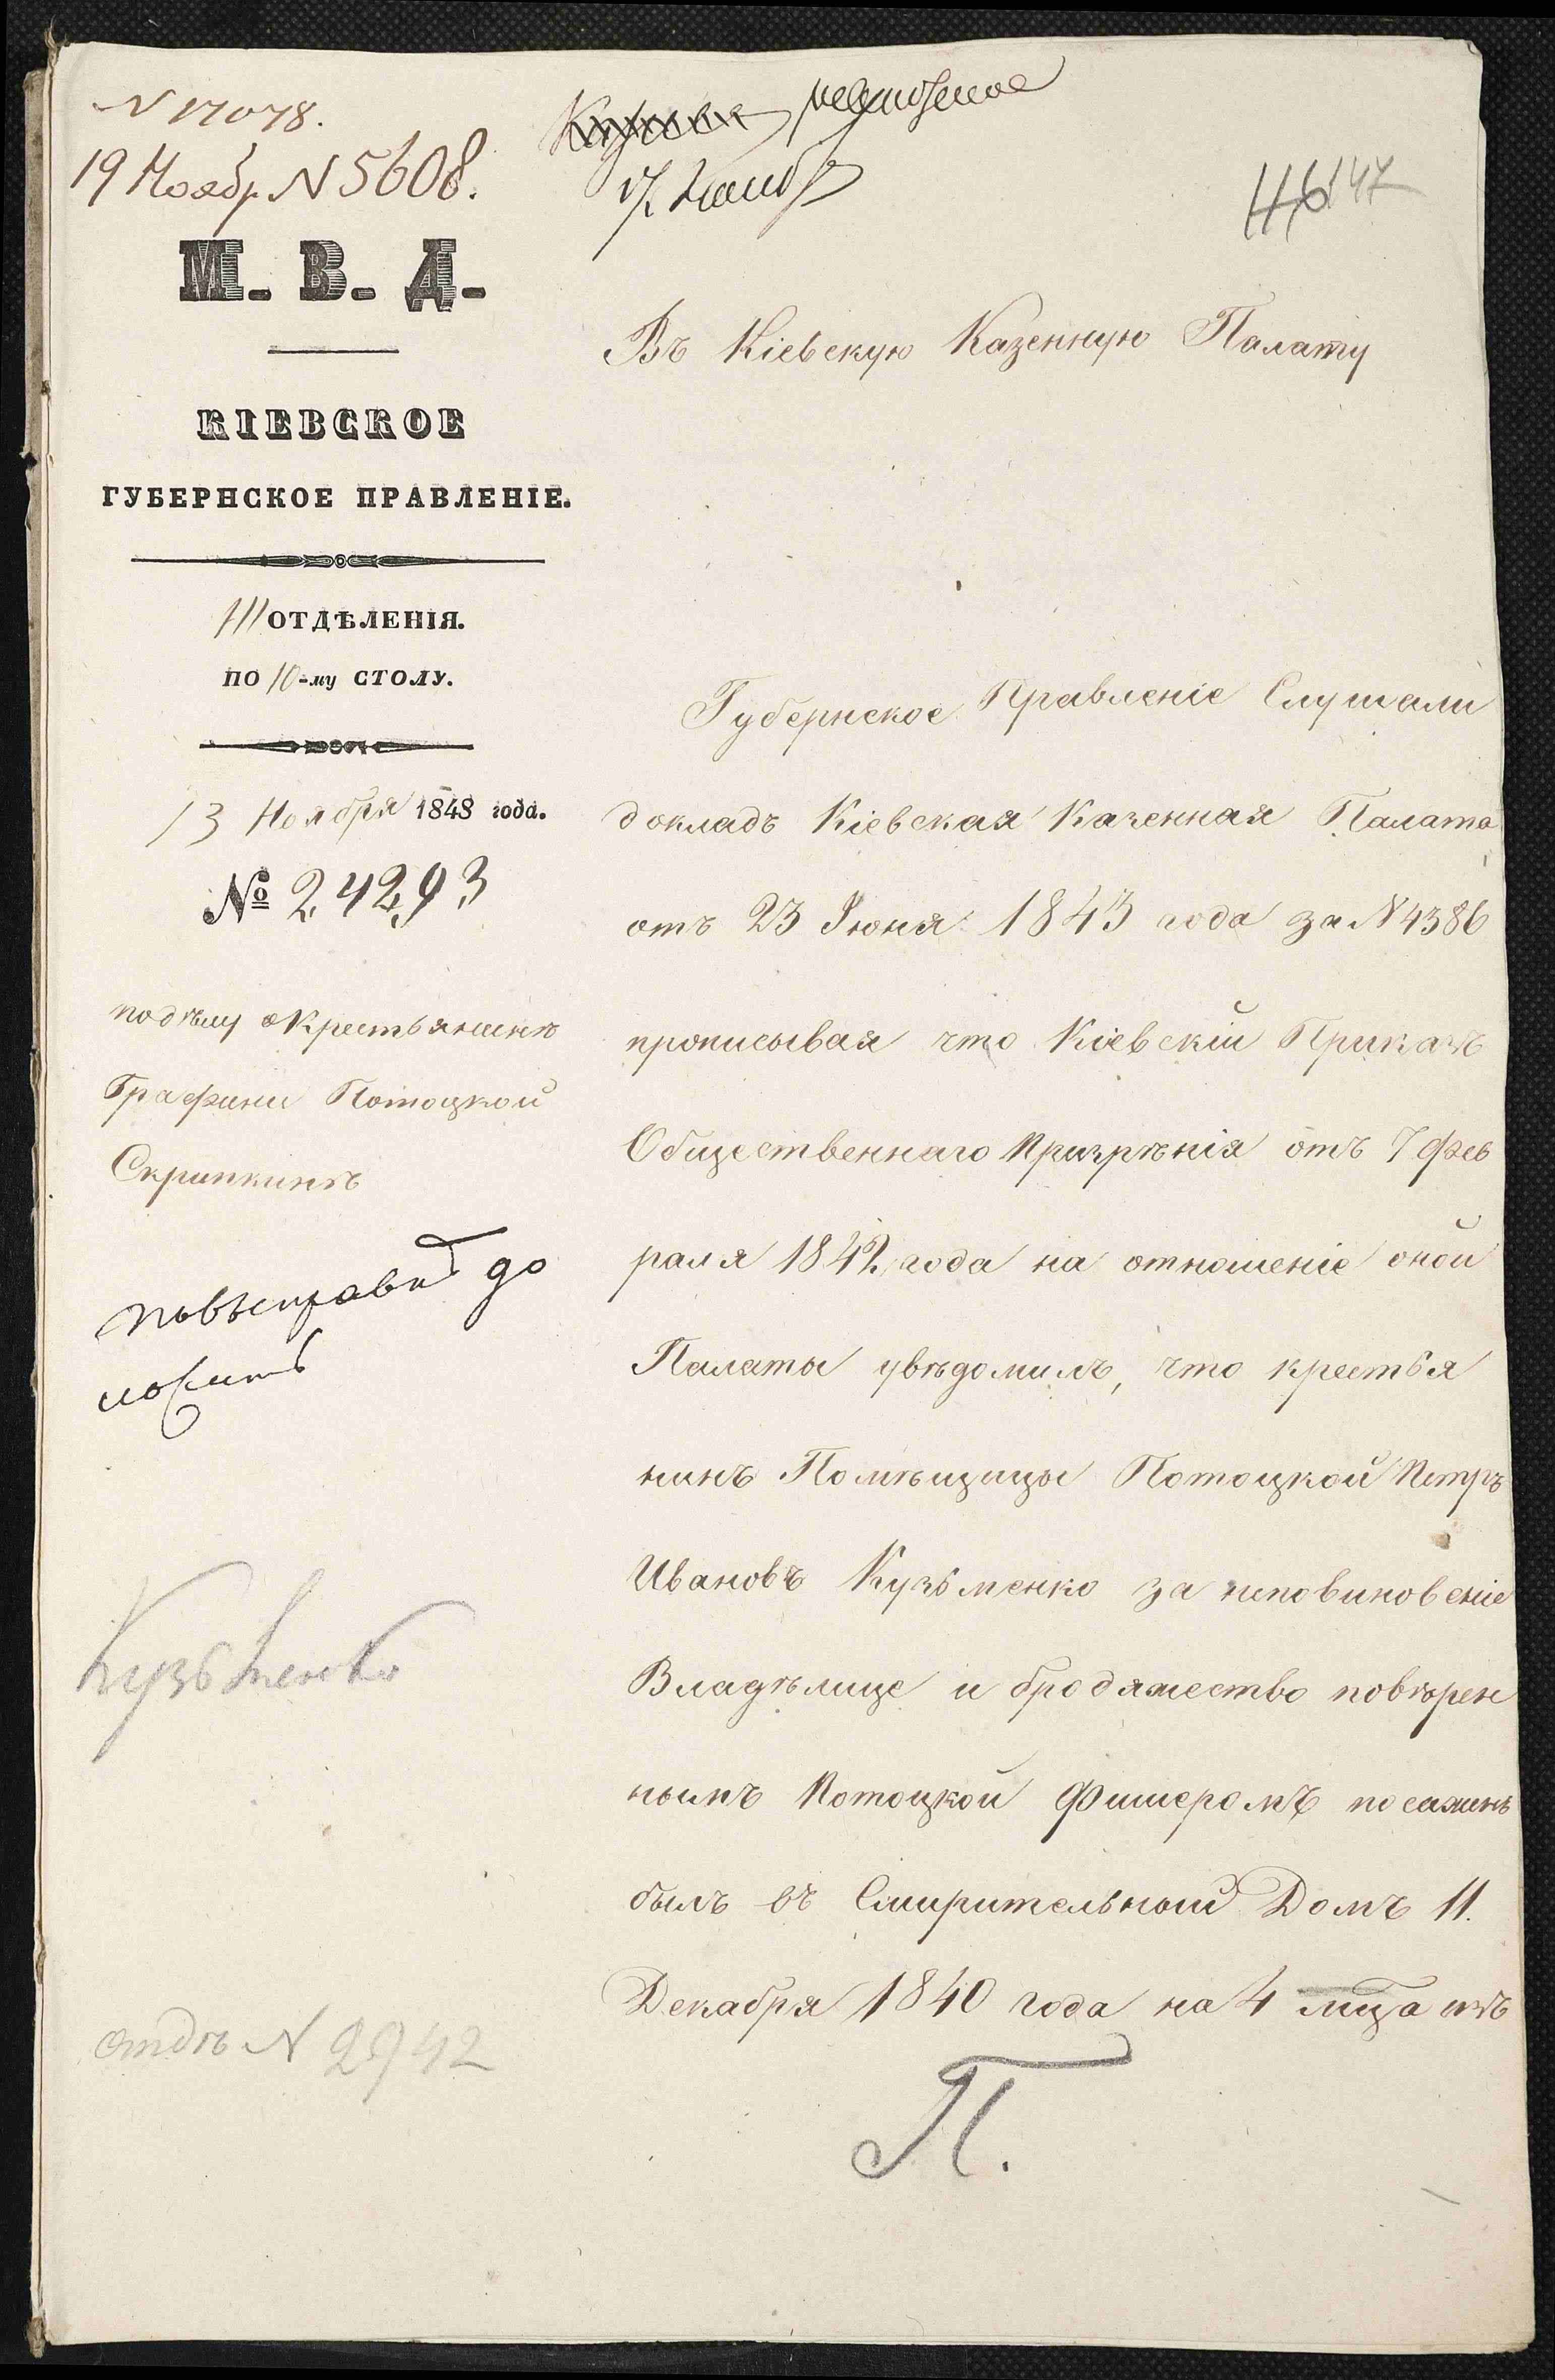 N 17078.
19 Ноябр N 5608.
ревизское
17 Нояб
147
М. В. Д.
КІЕВСКОЕ
ГУБЕРНСКОЕ ПРАВЛЕНІЕ.
III ОТДѢЛЕНІЯ.
ПО 10-му СТОЛУ.
13 Ноября 1848 года.
№ 24293
по дѣлу о Крестьянинѣ
Графини Потоцкой
Скрипкинъ
до
ложить
Кузьменко
отдѣ N 2942
Въ Кіевскую Казенную Палату
Губернское Правленіе Слушали
докладъ Кіевская Казенная Палата
отъ 23 Іюня 1843 года за N 4386
прописывая что Кіевскій Приказъ
Общественнаго Призрѣнія отъ 7 Фев
раля 1842 года на отношеніе оной
Палаты увѣдомилъ, что крестья
нинъ Помѣщицы Потоцкой Петръ
Ивановъ Кузьменко за неповиновеніе
Владѣлице и бродяжество повѣрен
нымъ Потоцкой Фишеромъ посажинъ
былъ въ Смирительный Домъ 11.
Декабря 1840 года на 4 мца изъ
П.